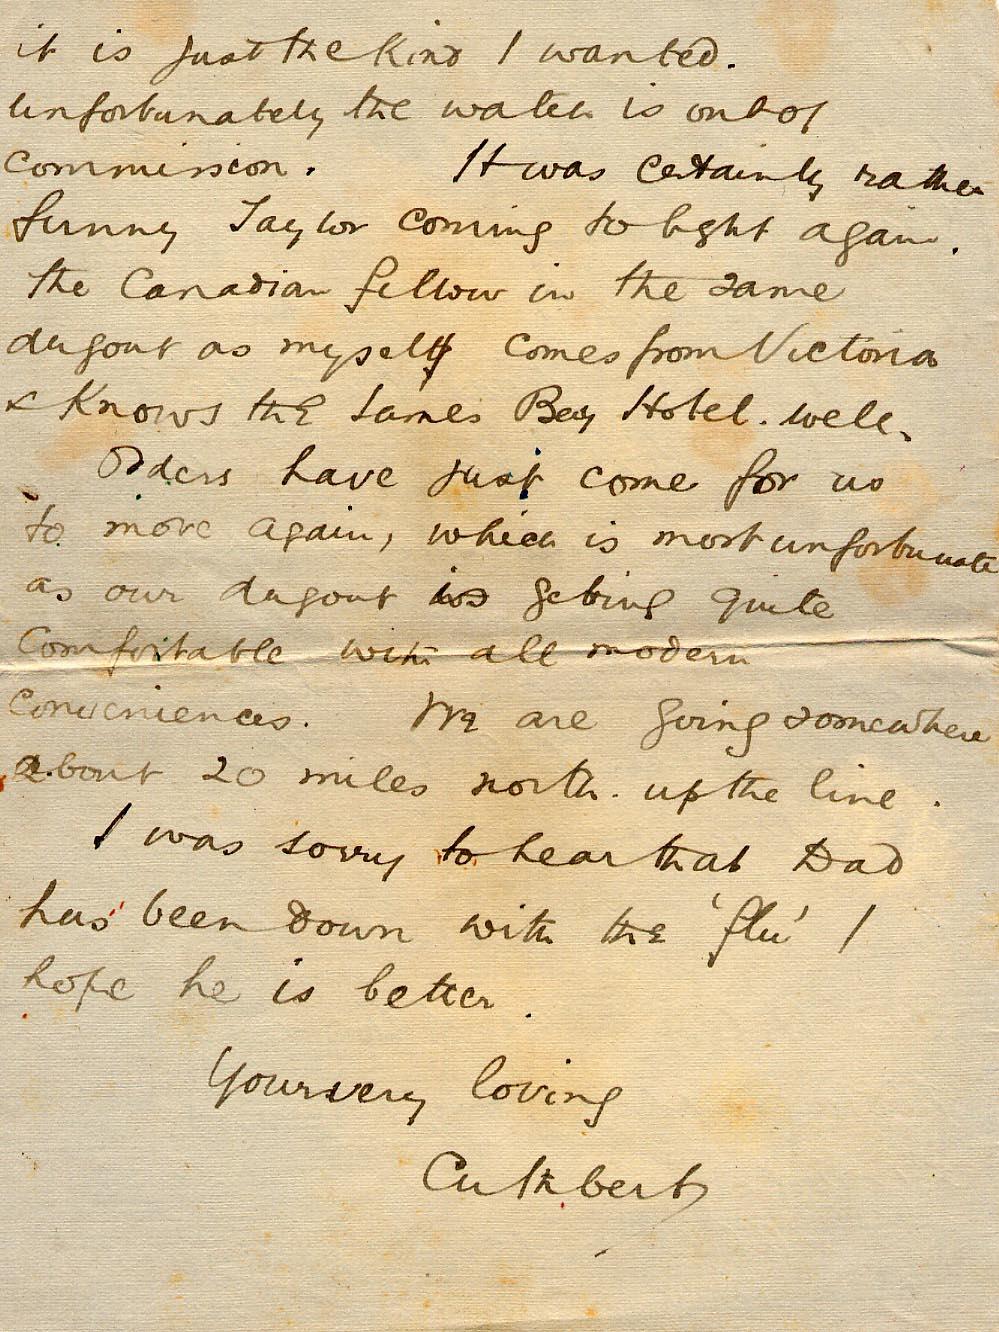 it is just the kind I wanted.
Unfortunately the watch is out of
commission. It was certainly rather
funny Taylor coming to light again.
The Canadian fellow in the same
dugout as myself comes from Victoria
& knows the James Bay Hotel. well.
Orders have just come for us
to move again, which is most unfortunate
as our dugout is geting quite
comfortable with all modern
conveniences. We are going somewhere
about 20 miles north. up the line.
I was sorry to hear that Dad
has been down with the 'flu' I
hope he is better.
Your very loving
Cuthbert